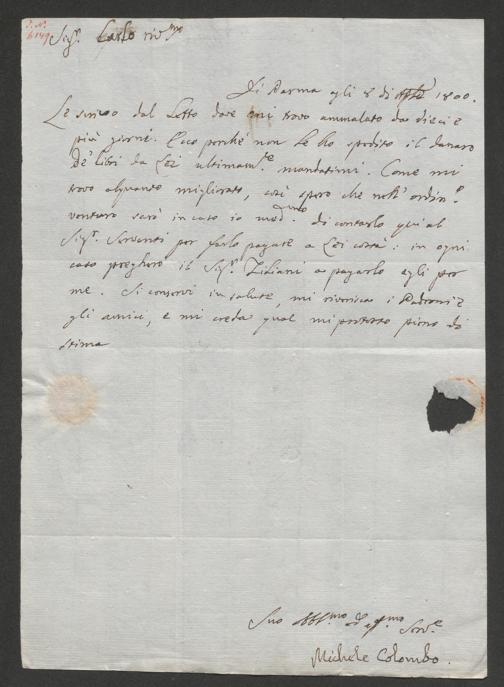 Sig.r Carlo riv.mo
Di Parma agli 8 di 1800.
Le scrivo dal Letto dove mi trovo ammalato da dieci e
più giorni. Ecco perché non Le ho spedito il danaro
de' libri da Lei ultimam.te mandatimi. Come mi
trovo alquanto migliorato, così spero che nell' ordin.o
venturo sarò in caso io med.mo di contarlo qui al
Sig.r Serventi per farlo pagare a Lei costì: in ogni
caso pregherò il Sig.r Ziliani a pagarlo egli per
me. Si conservi in salute, mi riverisca i Padroni e
gli amici, e mi creda qual mi protesto pieno di
stima
Suo Obb.mo Dev.mo Serv.e
Michele Colombo.